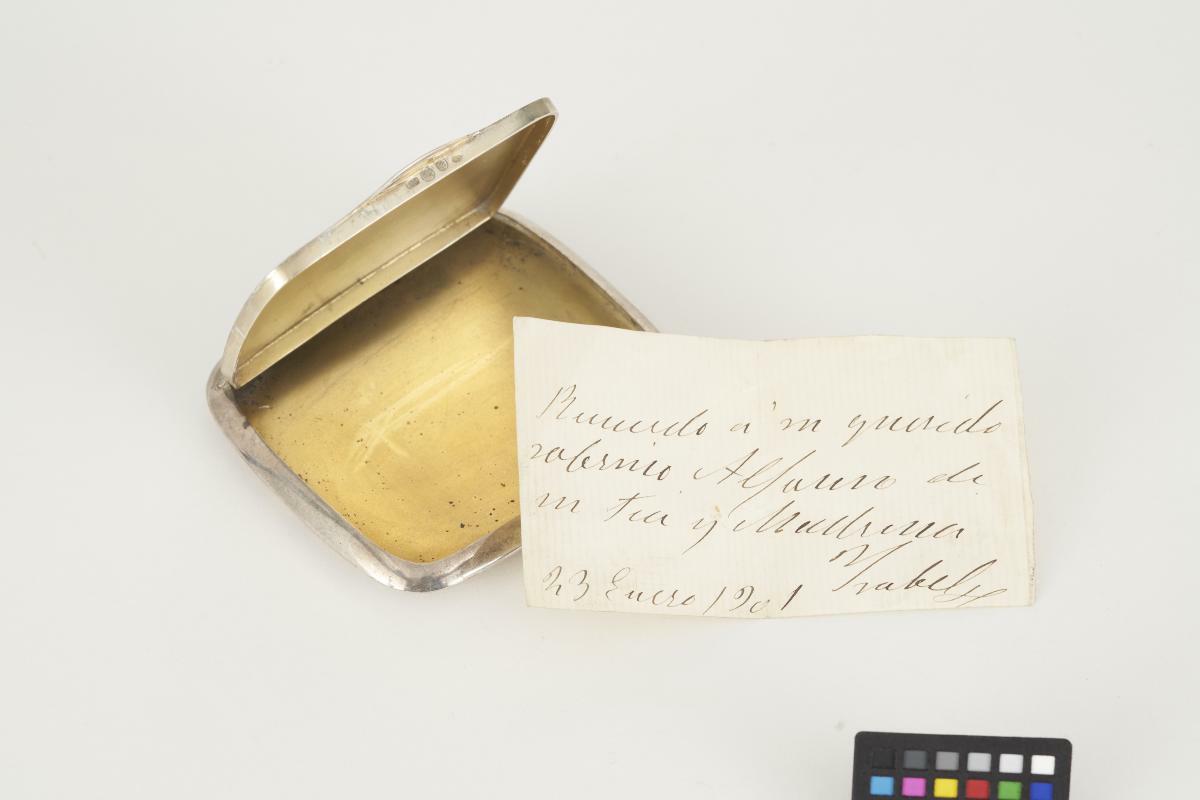 Recuerdo a' m querido
sobrino Alfonso de
su tia y Madrina
Ysabel
23 Enero 1901